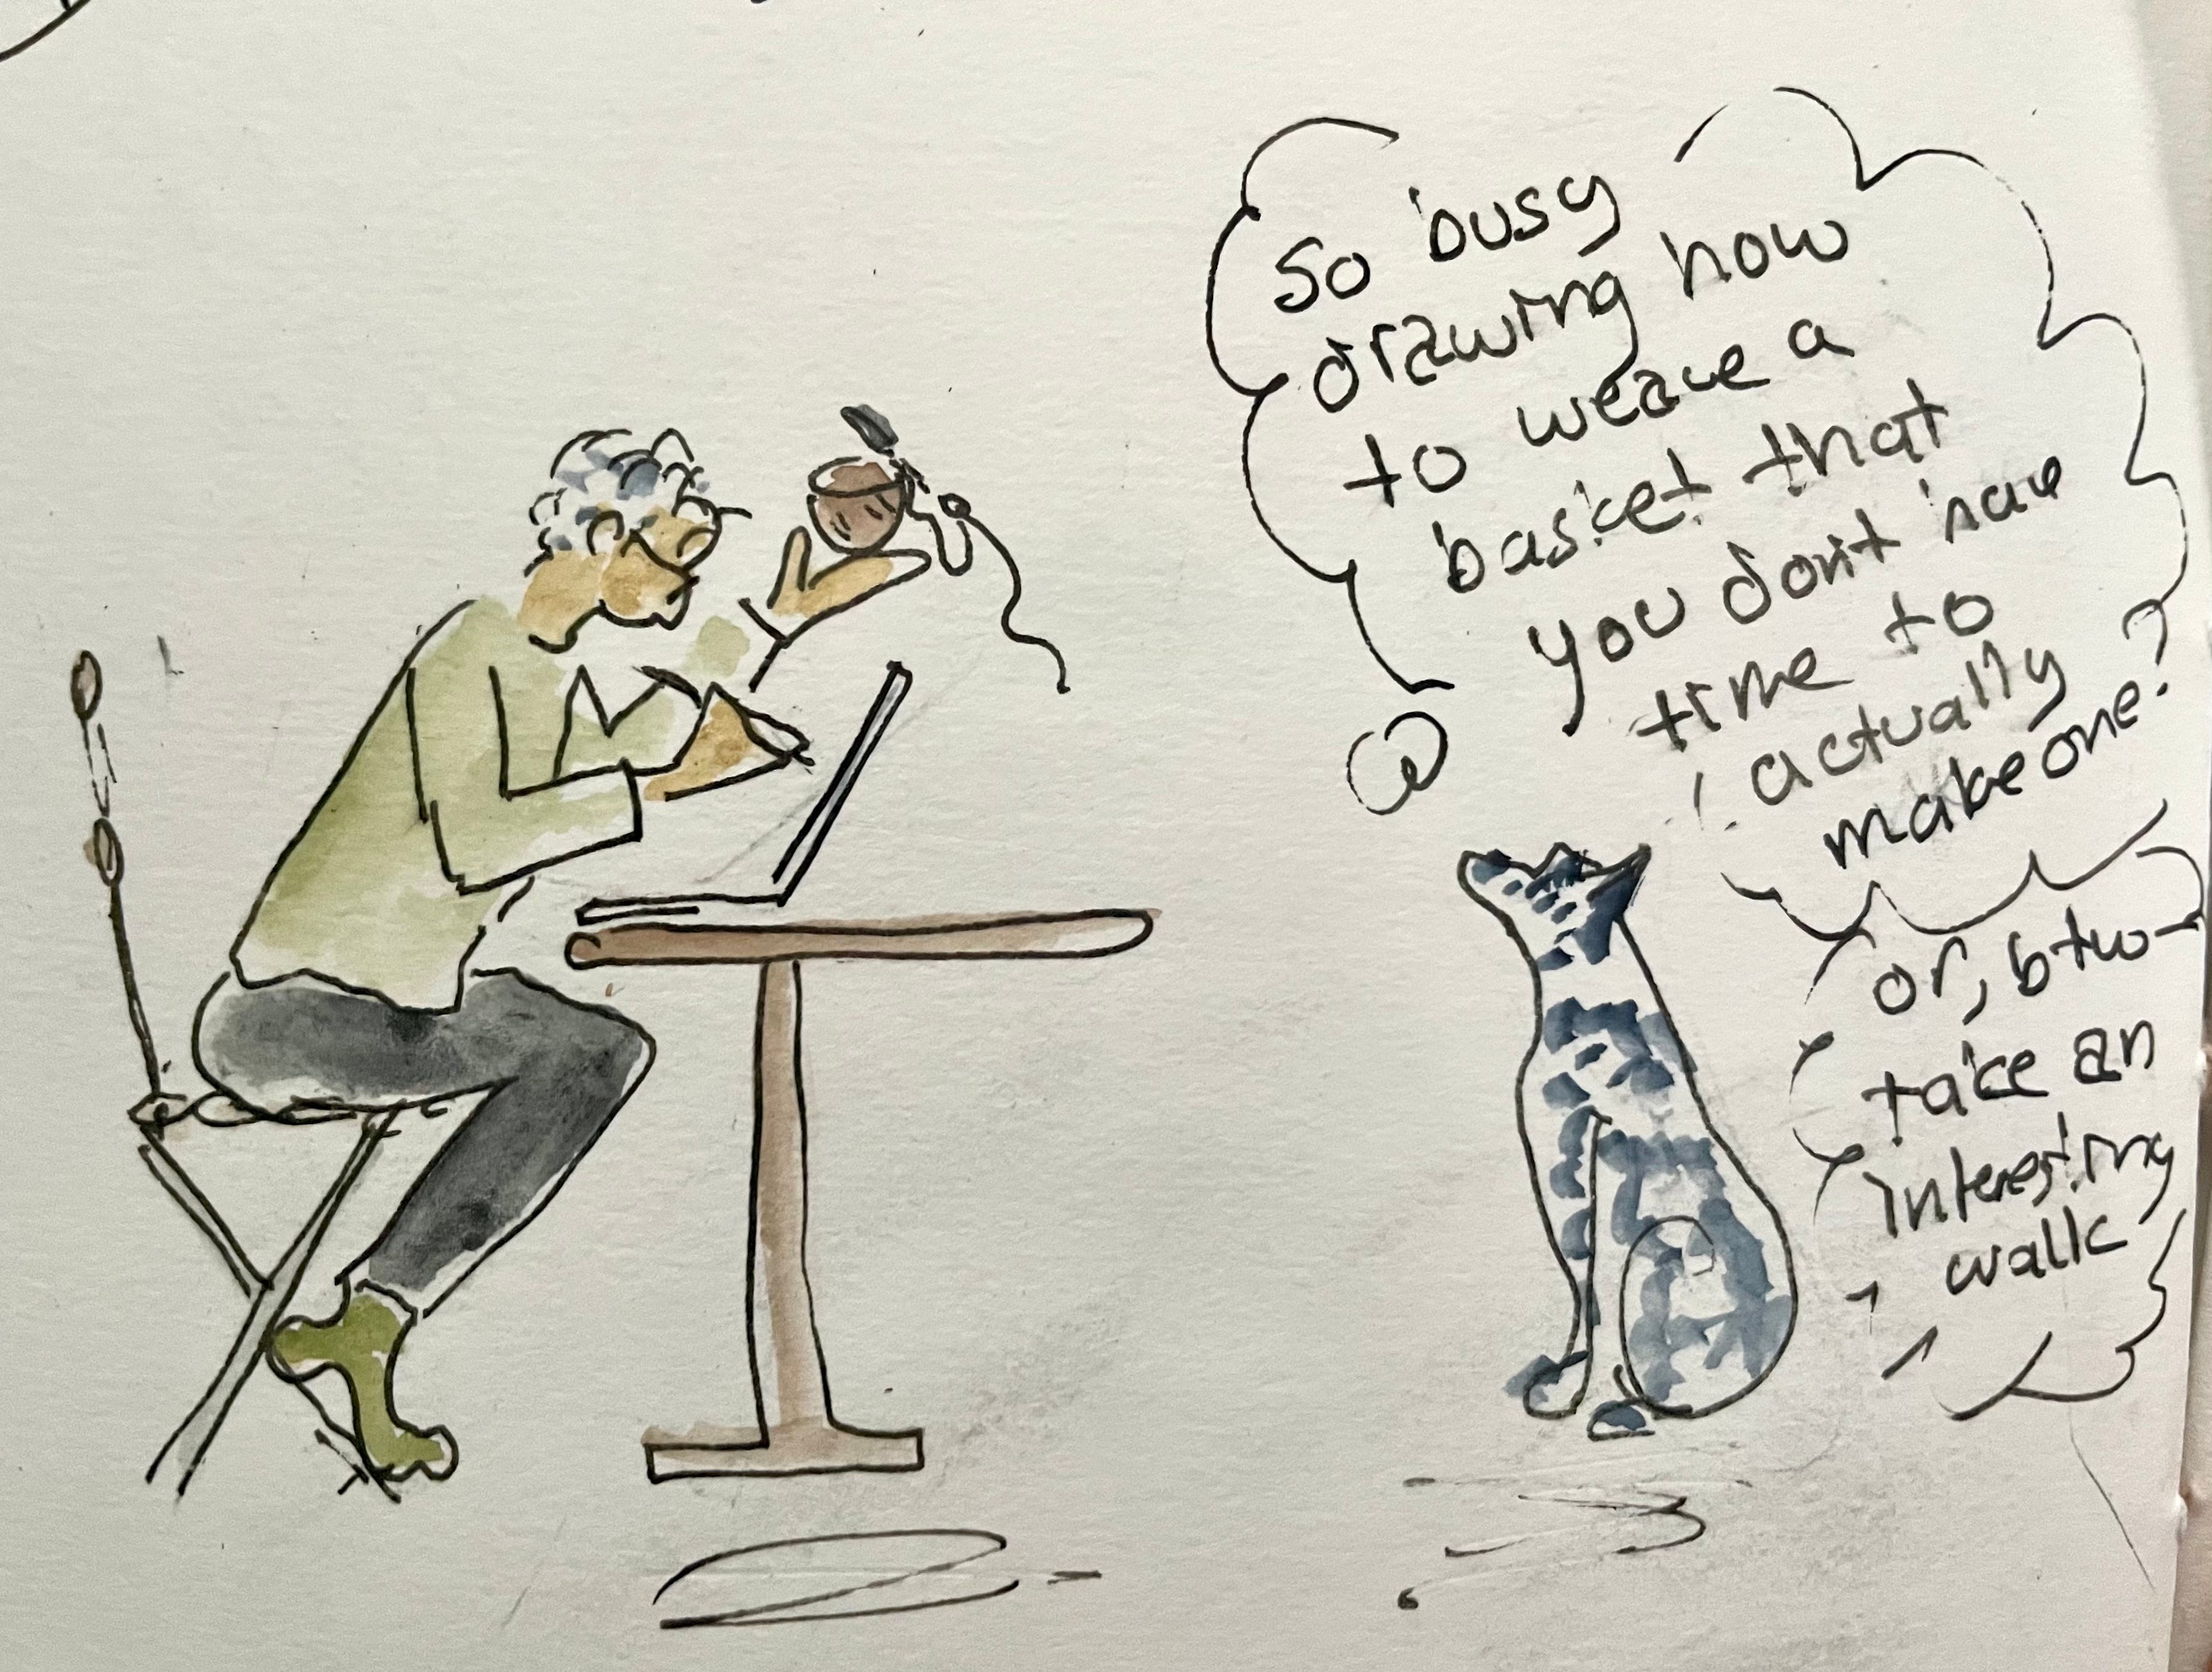 So busy
drawing how
to weave a
basket that
you don't have
time to
actually
make one?
or, btw-
take an
interesting
walk